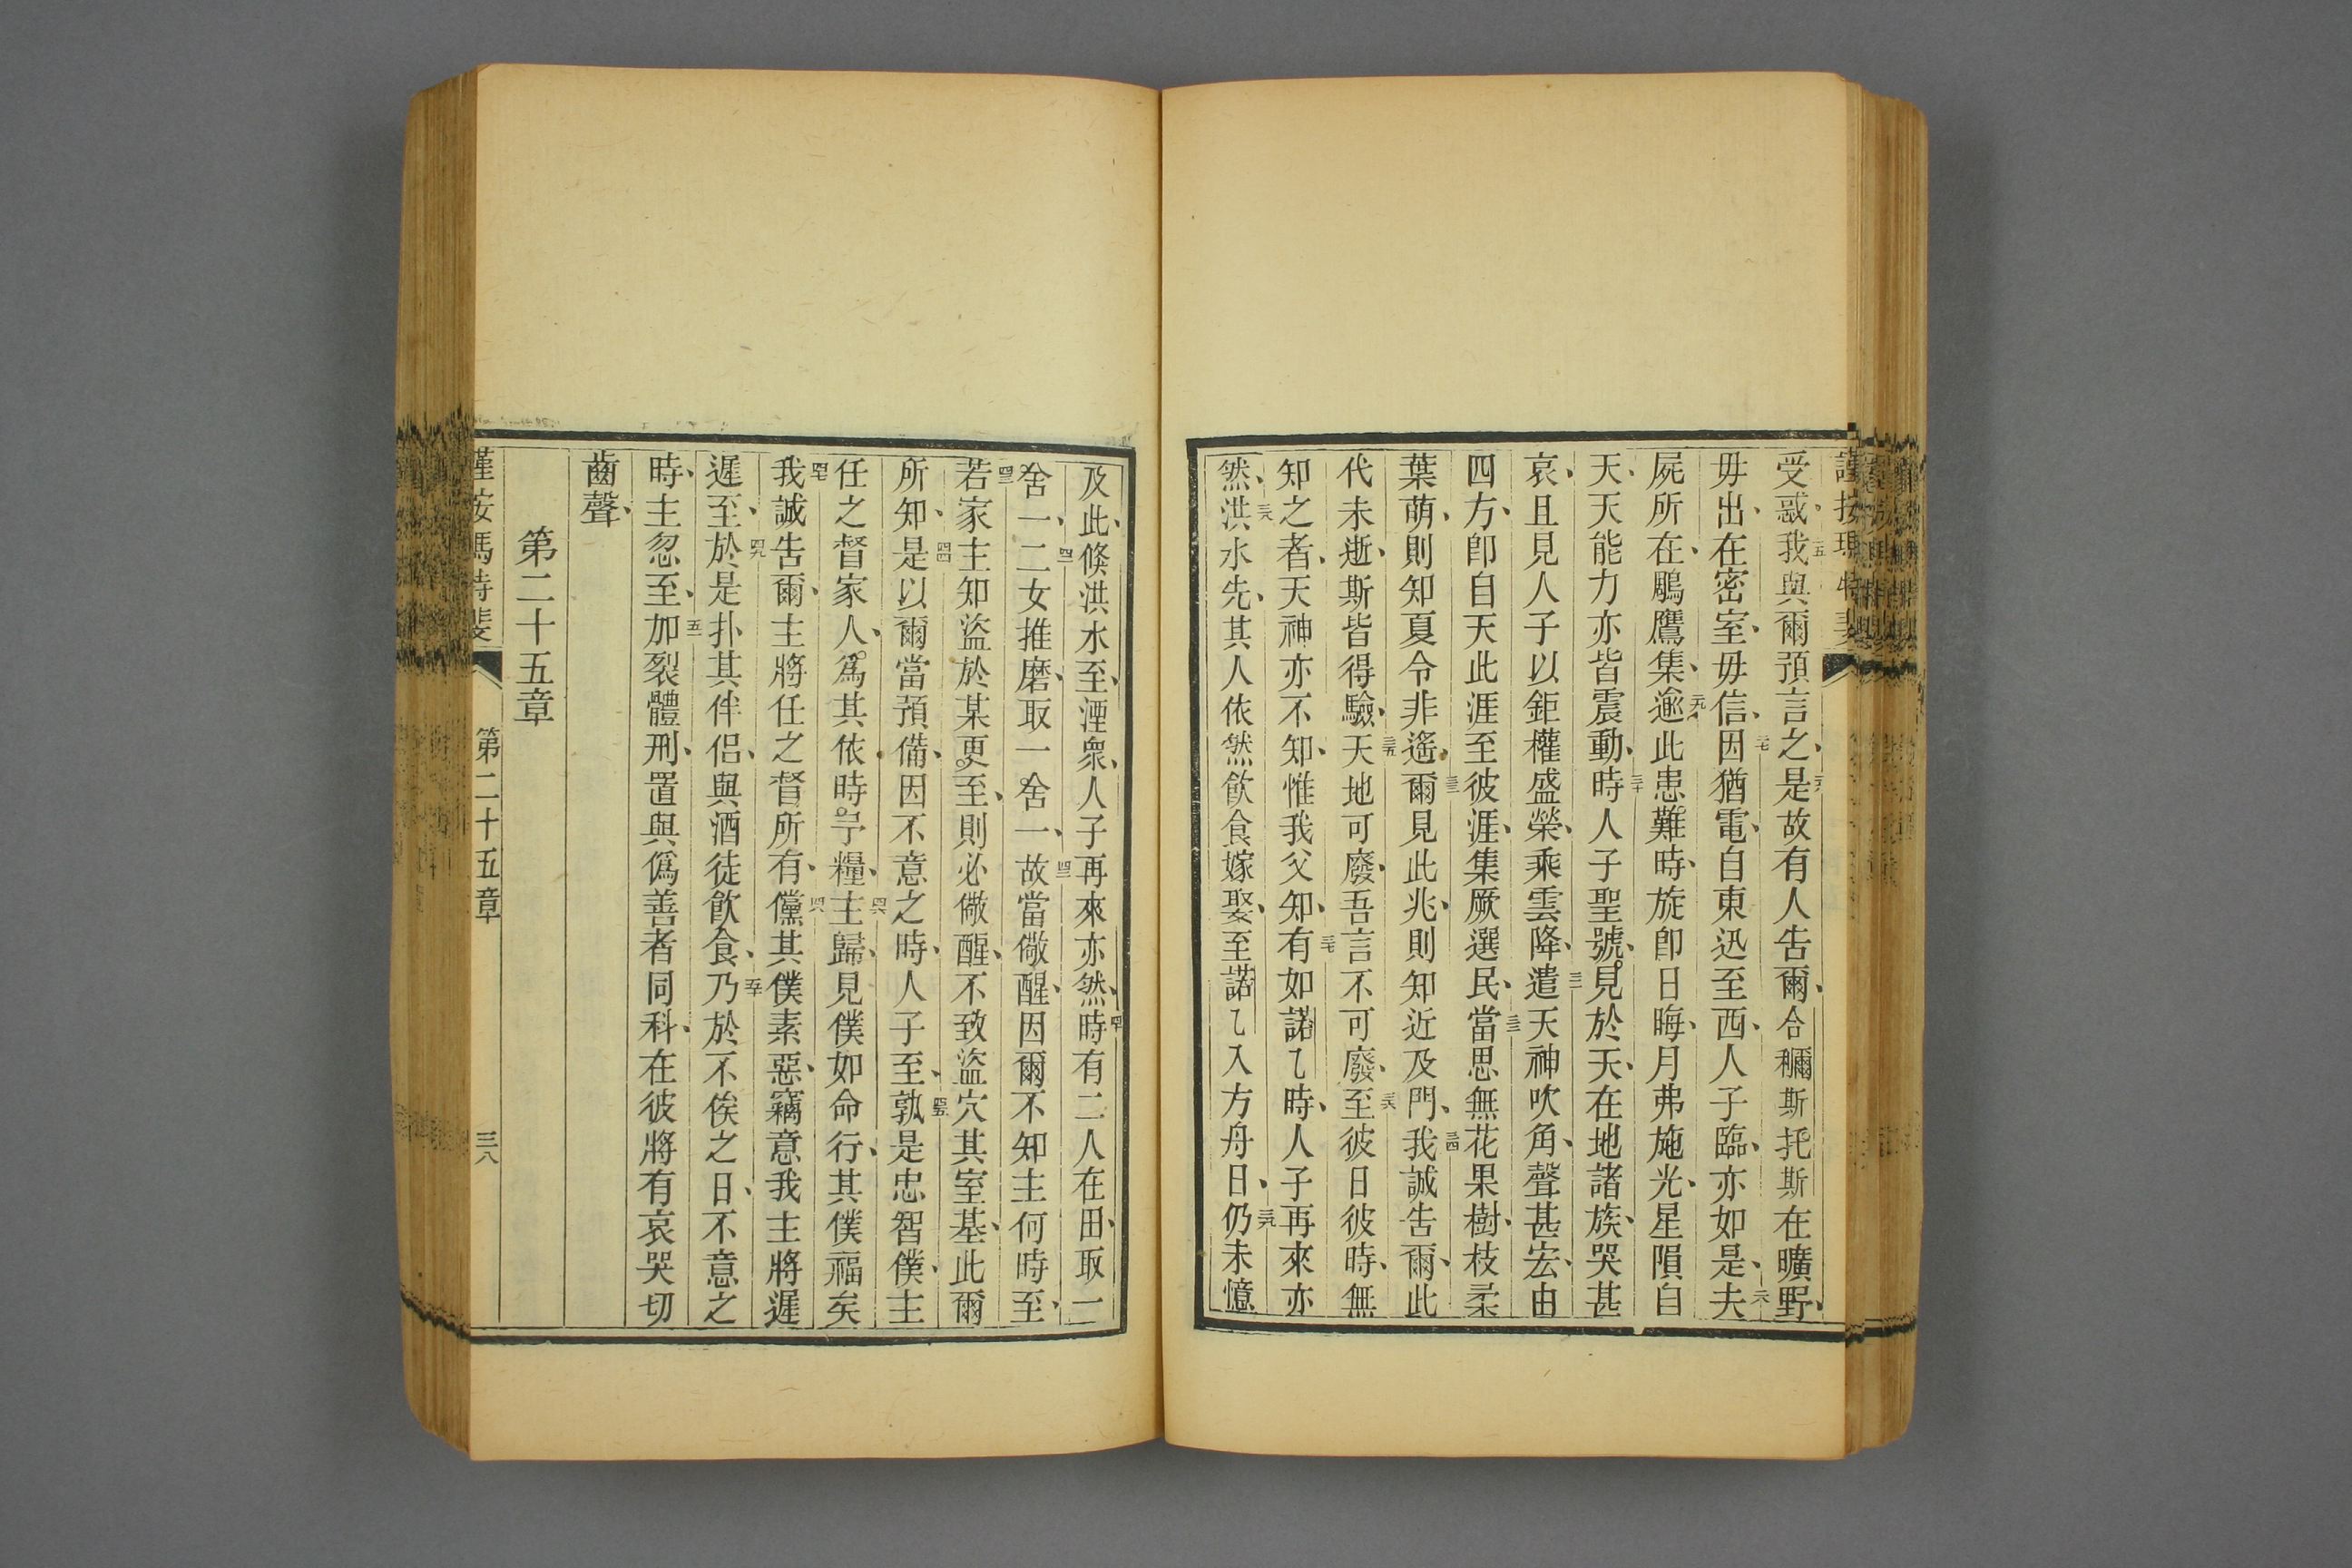 謹按瑪特斐
受惑、二五我與爾預言之、二六是故有人告爾、合穪斯托斯在曠野、
毋出、在密室、毋信、二七因猶電、自東迅至西、人子臨、亦如是、二八夫
屍所在、鵰鷹集、二九逾此患難時、旋即日晦、月弗施光、星隕自
天、天能力亦皆震動、三十時人子聖號見於天、在地諸族、哭甚
哀、且見人子以鉅權盛榮、乘雲降、三一遣天神吹角、聲甚宏、由
四方、即自天此涯至彼涯、集厥選民、三二當思無花果樹、枝柔
葉萌、則知夏令非遙、三三爾見此兆、則知近及門、三四我誠告爾、此
代未逝、斯皆得驗、三五天地可廢、吾言不可廢、三六至彼日彼時、無
知之者、天神亦不知、惟我父知、三七有如諾乙時、人子再來亦
然、三八洪水先、其人依然飲食嫁娶、至諾乙入方舟日、三九仍未憶
及此、倏洪水至、湮衆、人子再來亦然、四十時有二人在田、取一
舍一、四一二女推磨、取一舍一、四二故當儆醒、因爾不知主何時至、
四三若家主知盜於某更至、則必儆醒、不致盜穴其室基、此爾
所知、四四是以爾當預備、因不意之時、人子至、四五孰是忠智僕、主
任之督家人、爲其依時予糧、四六主歸、見僕如命行、其僕福矣
四七我誠告爾、主將任之督所有、四八儻其僕素惡、竊意我主將遲
遲至、四九於是扑其伴侶、與酒徒飲食、五十乃於不俟之日、不意之
時、主忽至、五一加裂體刑、置與僞善者同科、在彼將有哀哭切
齒聲、
第二十五章
謹按瑪特斐 第二十五章 三八